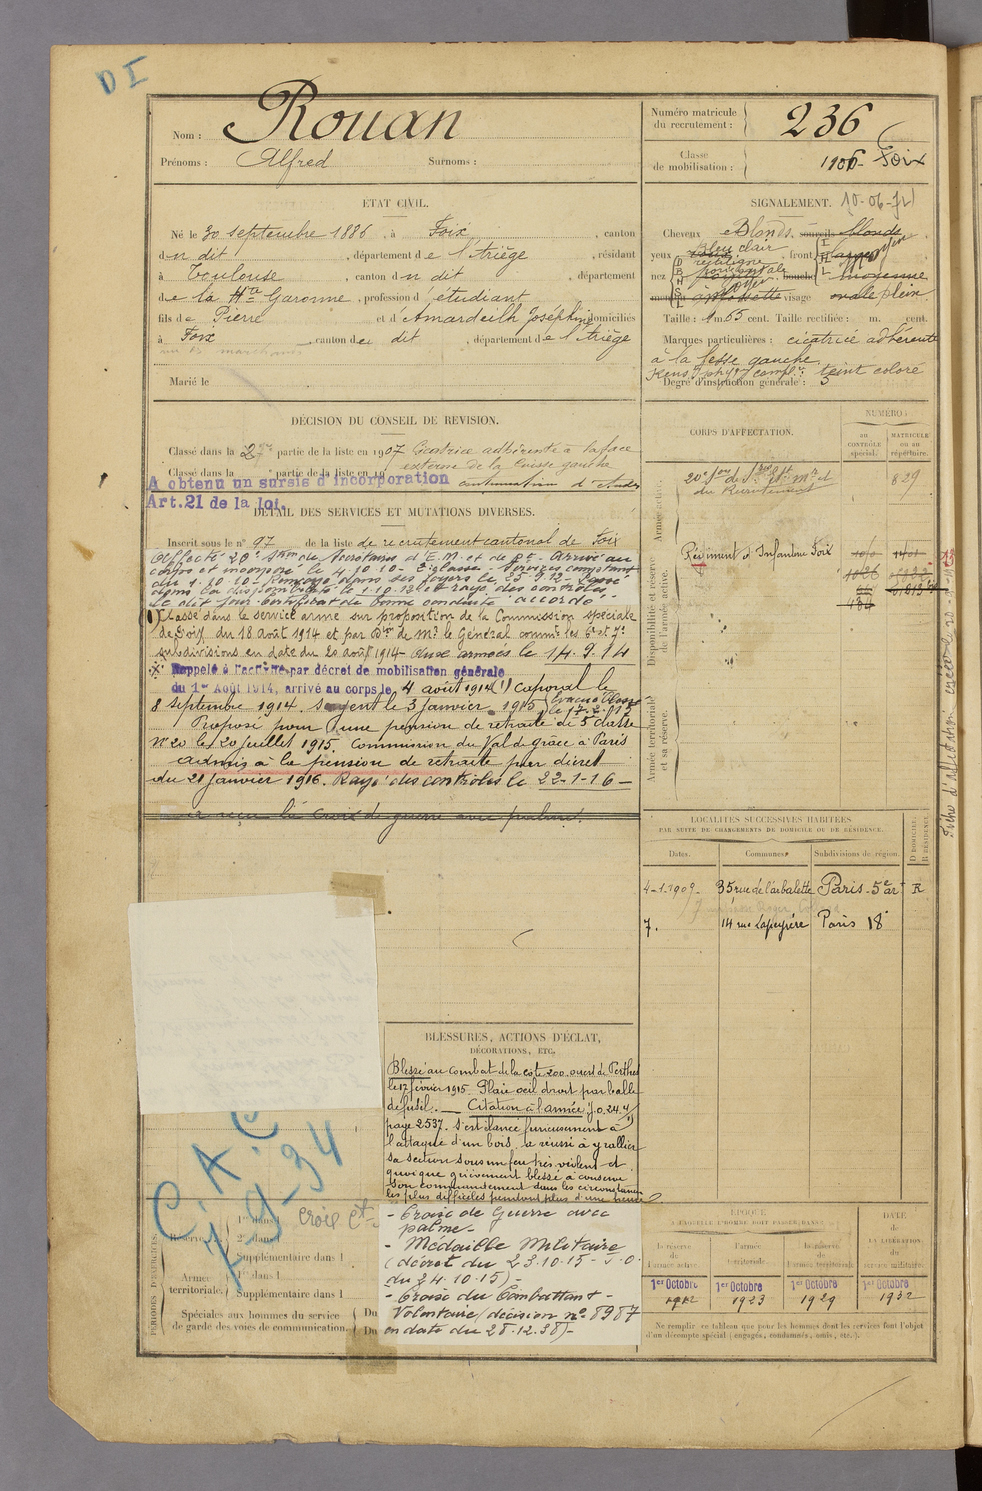 D I
Nom : Rouan
Prénoms : Alfred Surnoms :
Numéro matricule du recrutement : 236
Classe de mobilisation : 1906 Foix
ETAT CIVIL.
Né le 30 septembre 1886, à Foix, canton
du dit, département de l'Ariège, résidant
à Toulouse, canton du dit, département
de la Hte Garonne, profession d'étudiant
fils de Pierre et d'Amardeilh Joséphine domiciliés
à Foix, canton du dit, département de l'Ariège
Marié le
SIGNALEMENT.
Cheveux Blonds. sourcils blonds
yeux Bleu clair, front
nez rectiligne bouche moyenne
visage ovale plein
Taille : 1 m. 65 cent. Taille rectifiée : m. cent.
Marques particulières : cicatrice adhérente
à la fesse gauche.
Rens. phys. compl. : teint coloré
Degré d'instruction générale : 5
DÉCISION DU CONSEIL DE REVISION.
Classé dans la 2e partie de la liste en 1907 Cicatrice adhérente à la face
externe de la cuisse gauche
Classé dans la partie de la liste en 19
A obtenu un sursis d'incorporation continuation d'études
Art. 21 de la loi.
DÉTAIL DES SERVICES ET MUTATIONS DIVERSES.
Inscrit sous le n° 97 de la liste de recrutement cantonal de Foix
Affecté 20e Son de Secrétaires d'E.M. et de Rt. Arrivé au
corps et incorporé le 4.10.10 - 2e classe - Services comptant
du 1.10.10 - Renvoyé dans ses foyers le 25.9.12 - Passé
dans la disponibilité le 1.10.12 et rayé des contrôles
le dit jour certificat de bonne conduite "accordé".
1) Classé dans le service armé sur proposition de la Commission spéciale
de Foix du 18 août 1914 et par Don de Mr le Général commt les 6e et 7e
subdivisions en date du 20 août 1914 - Aux armées le 14.9.14
Rappelé à l'activité par décret de mobilisation générale
du 1er Août 1914, arrivé au corps le 4 août 1914 (1) Caporal le
8 septembre 1914. Sergent le 3 janvier 1915
Proposé pour une pension de retraite de 5e classe
N° 20 le 20 juillet 1915. Commission du Val de grâce à Paris
Admis à la pension de retraite par décret
du 21 janvier 1916. Rayé des contrôles le 22-1-16 -
la croix de guerre avec palme.
CORPS D'AFFECTATION.
NUMÉROS
au contrôle spécial.
matricule ou au répertoire.
Armée active.
Disponibilité et réserve de l'armée active.
Armée territoriale et sa réserve.
20e Son de Sres d'Et. Mr et du Recrutement 829
Régiment d'Infanterie Foix
LOCALITÉS SUCCESSIVES HABITÉES
PAR SUITE DE CHANGEMENTS DE DOMICILE OU DE RÉSIDENCE.
Dates. Communes. Subdivisions de région. D DOMICILE. R RÉSIDENCE.
4-1-1909- 35 rue de l'arbalette Paris - 5e art R
14 rue Lapeyrère Paris 18
BLESSURES, ACTIONS D'ÉCLAT,
DÉCORATIONS, ETC.
Blessé au combat de la cote 200. ouest de Perthes
le 17 février 1915. Plaie oeil droit par balle
de fusil. — Citation à l'armée J.O. 24.4
page 2537. S'est élancé furieusement à
l'attaque d'un bois, a réussi à y rallier
sa section sous un feu très violent et
quoique grièvement blessé a conservé
son commandement dans les circonstances
les plus difficiles pendant plus d'une heure
- Croix de Guerre avec
palme -
- Médaille Militaire
(décret du 23.10.15 - J.O.
du 24.10.15) -
- Croix du Combattant -
Volontaire (décision n° 8987
en date du 28.12.38) -
C.A.C
7-9-34
PÉRIODES D'EXERCICES.
Réserve 1re dans l
2e dans l
Supplémentaire dans l
Armée territoriale. 1re dans l
Supplémentaire dans l
Spéciales aux hommes du service
de garde des voies de communication. Du
Du
ÉPOQUE
A LAQUELLE L'HOMME DOIT PASSER DANS :
la réserve de l'armée active.
l'armée territoriale.
la réserve de l'armée territoriale.
DATE de LA LIBÉRATION du service militaire.
1er Octobre 1912
1er Octobre 1923
1er Octobre 1929
1er Octobre 1932
Ne remplir ce tableau que pour les hommes dont les services font l'objet
d'un décompte spécial (engagés, condamnés, omis, etc.).